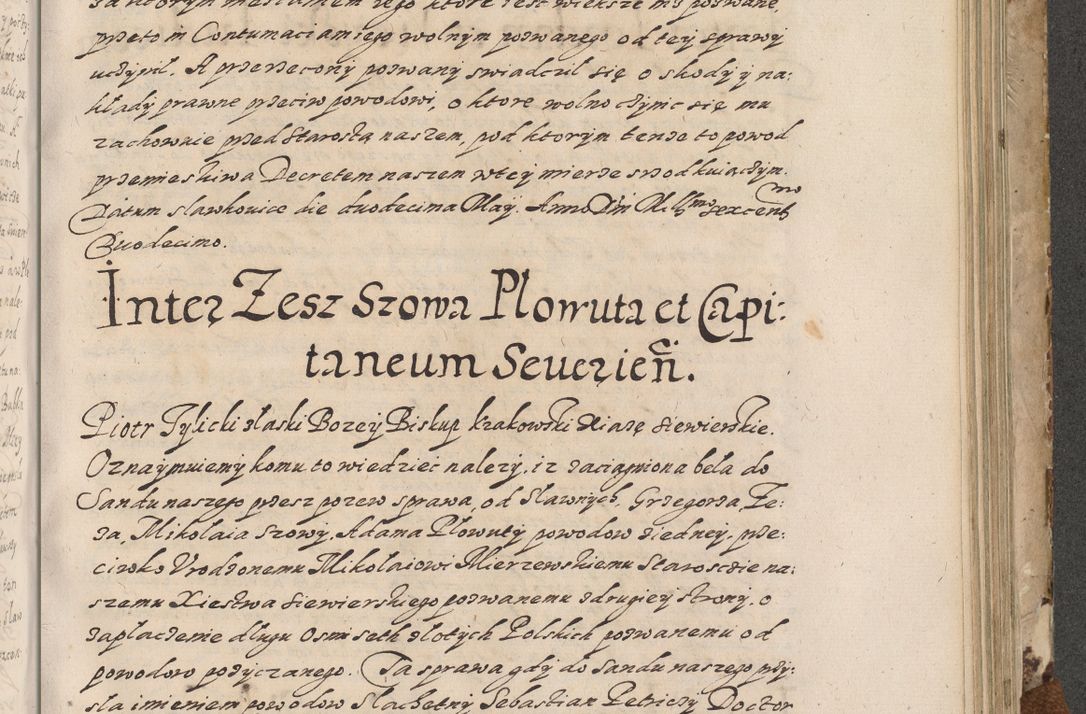 przeto in Contumaciam iego wolnym pozwanego od tey sprawy
uczynił. A przerzeczony pozwany swiadczil się o skody y na:
kłady prawne przeciw powodowi, o ktore wolno czynic się mu
zachowuie przed Starostą naszem, pod ktorym tenże to powod
przemieskiwa Decretem naszem wtey mierze srzodkuiączym.
Datum slawkouice die duodecima Maÿ. Anno Dni Mill̃mo sexcentmo
Duodecimo.
Inter Zesz Szowa Plowuta et Capi:
taneum Seuerień.
Piotr Tylicki z łaski Bozey Biskup krakowski Xiązę Siewierskie.
Oznaymuiemy komu to wiedziec nalezy, iz zaciągniona beła do
Sandu naszego przez pozew sprawa, od sławnych, Grzegorza Ze:
za, Mikolaia szowy, Adama Płowuty powodow ziedney, prze:
ciwko Vrodzonemu Mikolaiowi Mierzewskiemu Staroscie na:
szemu Xiestwa Siewierskiego pozwanemu zdrugiey strony, o
zaplaczenie dlugu osmi seth zlotych Polskich pozwanemu od
powodow pozyczanego. Ta sprawa gdy do Sandu naszego przy:
sla imieniem powodow Slachetny Sebastian Petricży Doctor